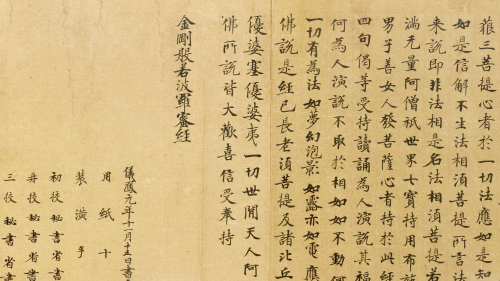 藐三菩提心者於一切法應如是知
如是信解不生法相須菩提所言法
来說即非法相是名法相須菩提若
滿无量阿僧祇世界七寶持用布施
男子善女人發菩薩心者持於此經
四句偈等受持讀誦為人演說其福
何為人演說不取於相如如不動何
一切有為法如夢幻泡影如露亦如電應
佛說是經已長老須菩提及諸比丘
優婆塞優婆夷一切世間天人阿
佛所說皆大歡喜信受奉持
金剛般若波羅蜜經
儀鳳元年十一月十五日書
用紙十
装潢手
初校秘書省書
再校秘書省書
三校秘書省書